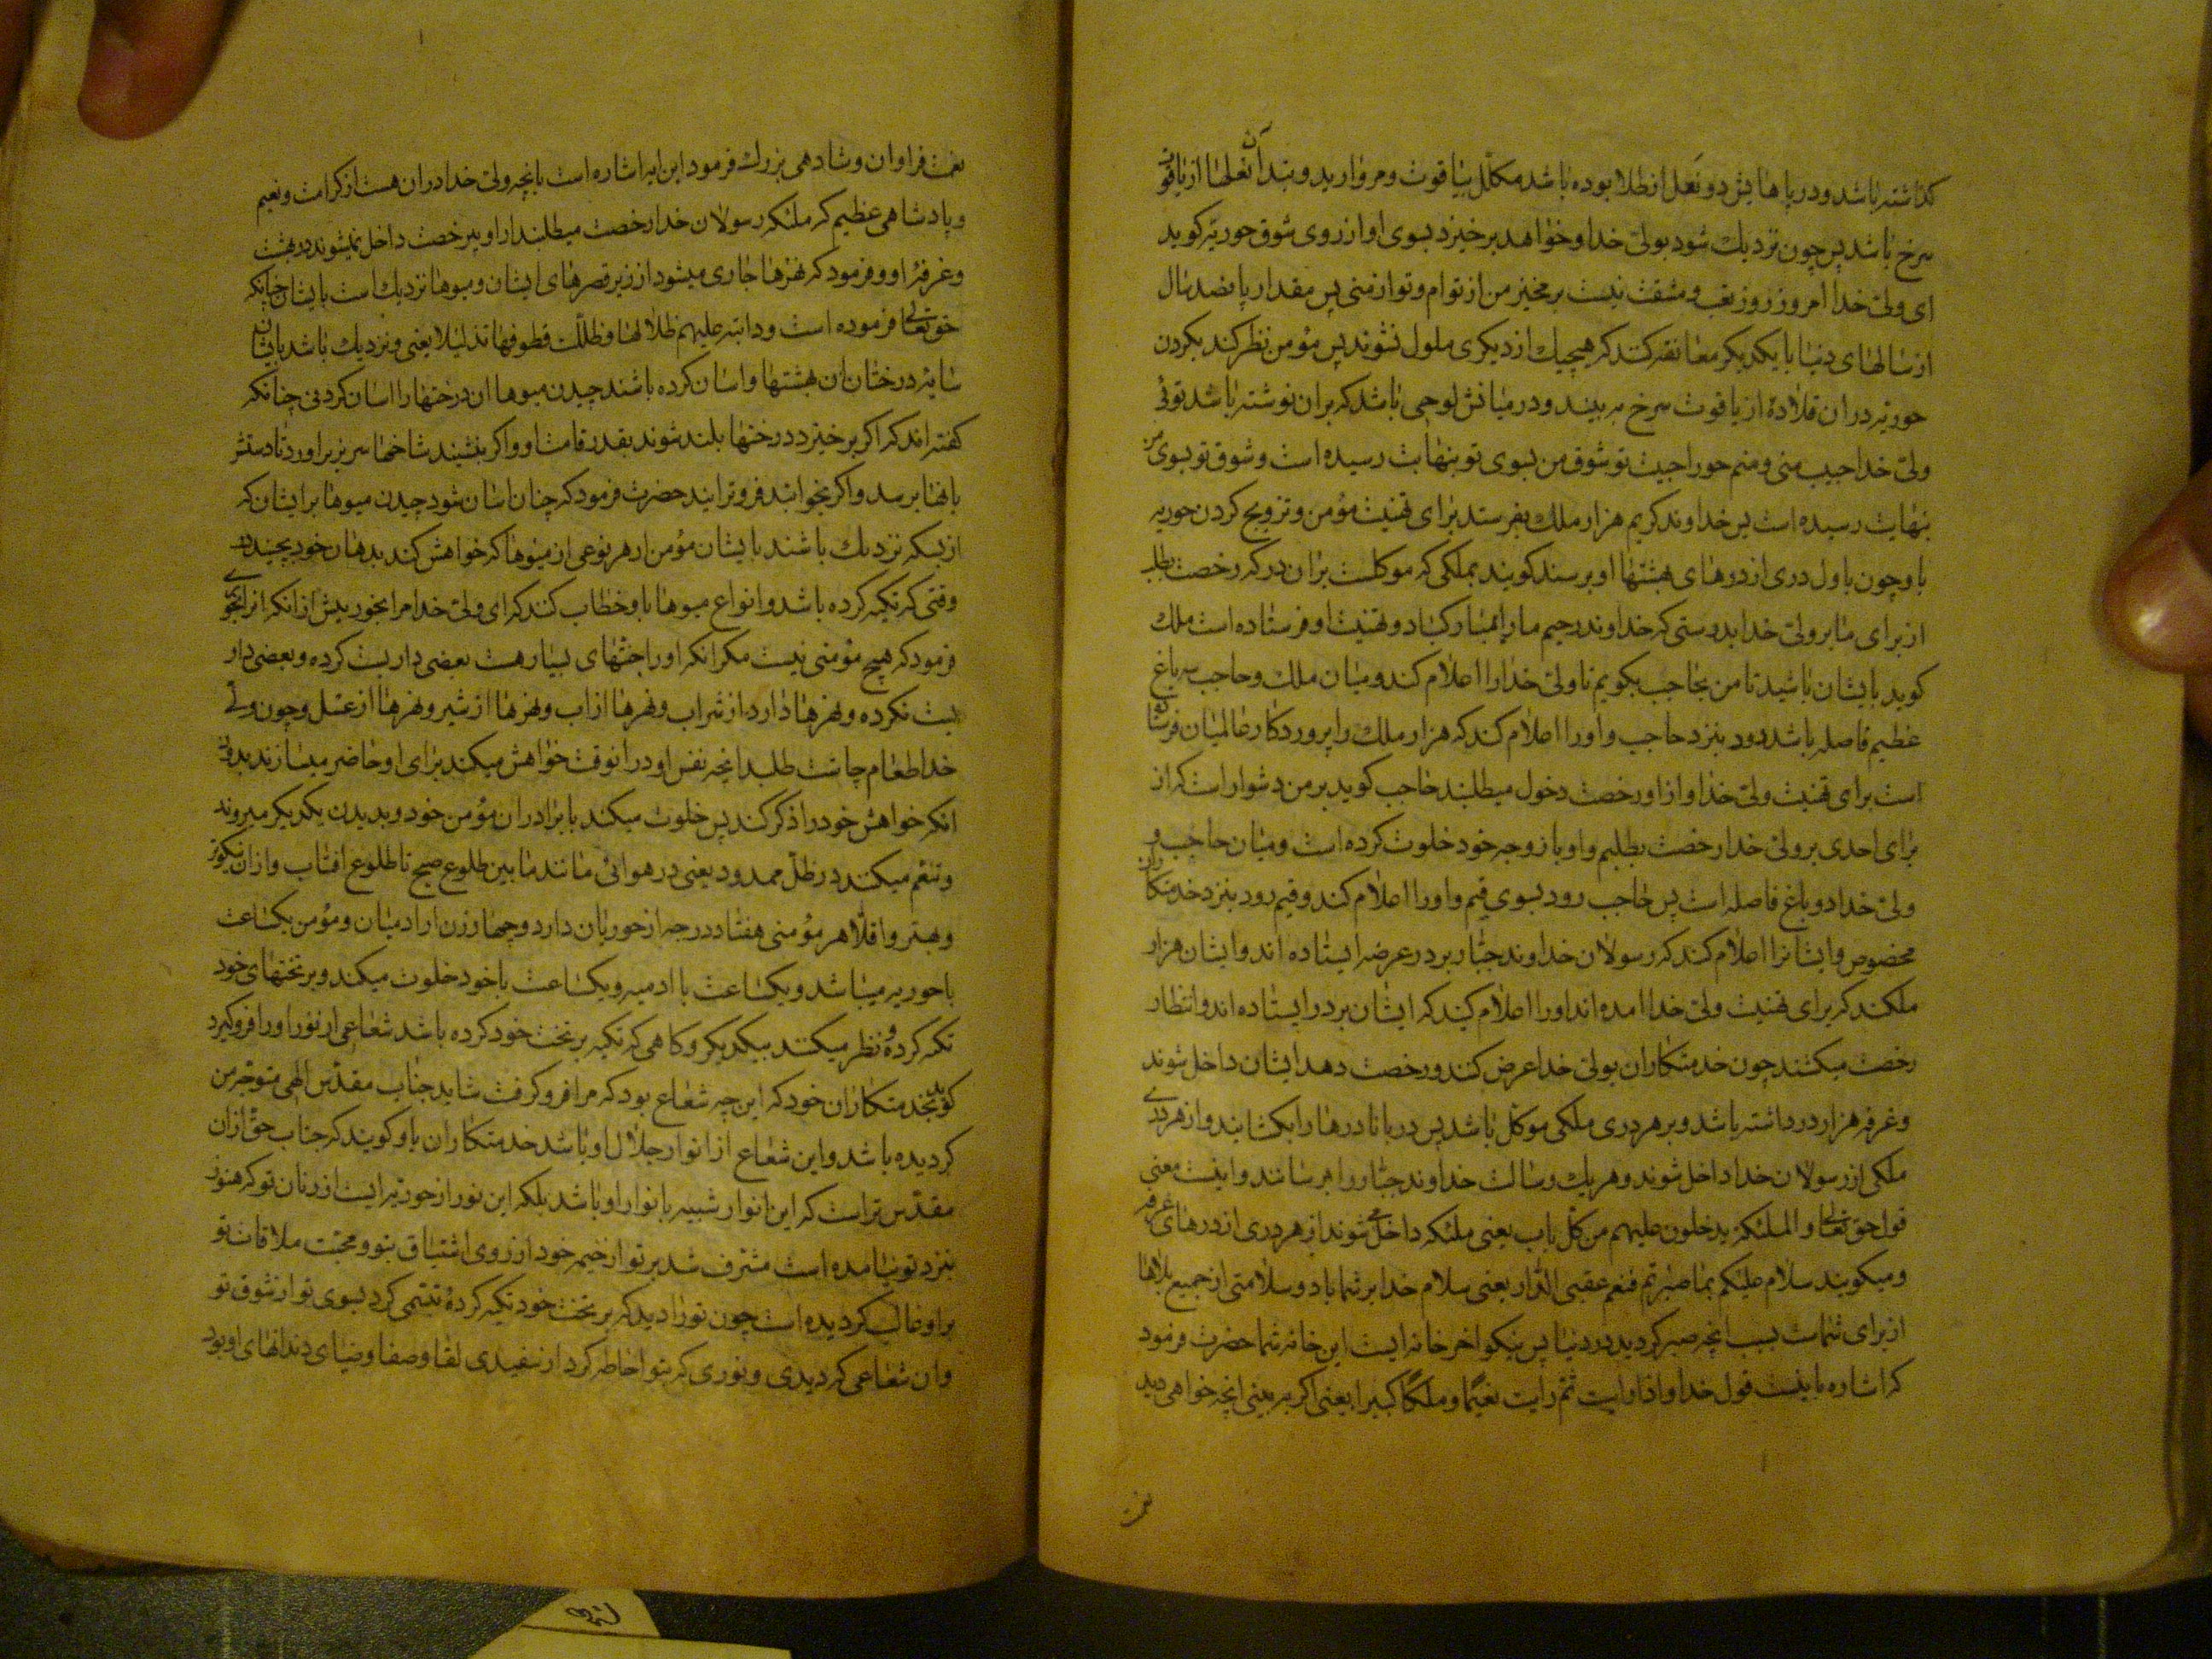 کذاشته باشد و در پاهایش دو نعل از طلا بوده باشد مکلّل بیاقوت و مروارید و بند آن نعلها از یاقوت
سرخ باشد پس چون نزدیك شود بولیّ خدا و خواهد برخیزد بسوی او از روی شوق حوریّه کوید
ای ولیّ خدا امروز روز تعب و مشقت نیست برمخیز من از توام و تو از منی پس مقدار پانصد سال
از سالهای دنیا با یکدیکر معانقه کنند که هیچیك از دیکری ملول نشوند پس مؤمن نظر کند بکردن
حوریّه در ان قلادۀ از یاقوت سرخ به بیند و در میانش لوحی باشد که بران نوشته باشد توئی
ولیّ خدا حبیب منی و منم حورا حبیبۀ تو شوق من بسوی تو بنهایت رسیده است و شوق تو بسوی من
بنهایت رسیده است پس خداوند کریم هزار ملك بفرستد برای تهنیت مؤمن و تزویج کردن حوریه
باو چون باول دری از درهای بهشتها او برسند کویند بملکی که موکلست بران در که رخصت بطلب
از برای ما بر ولیّ خدا بدرستی که خداوند رحیم ما را بمبارکباد و تهنیت او فرستاده است ملك
کوید بایشان باشید تا من بحاجب بکویم تا ولیّ خدا را اعلام کند و میان ملك و حاجب سه باغ
عظیم فاصله باشد رود بنزد حاجب و او را اعلام کند که هزار ملك را پروردکار عالمیان فرستاده
است برای تهنیت ولیّ خدا و از او رخصت دخول میطلبند حاجب کوید بر من دشوار است که از
برای احدی بر ولیّ خدا رخصت بطلبم و او با زوجه خود خلوت کرده است و میان حاجب و
ولیّ خدا دو باغ فاصله است پس حاجب رود بسوی قیم و او را اعلام کند و قیم رود بنزد خدمتکاران
مخصوص و ایشانرا اعلام کند که رسولان خداوند جبّار بر در عرصه ایستاده اند و ایشان هزار
ملکند که برای تهنیت ولیّ خدا امده اند او را اعلام کنید که ایشان بر در ایستاده اند و انتظار
رخصت میکشند چون خدمتکاران بولیّ خدا عرض کنند و رخصت دهد ایشان داخل شوند
و غرفه هزار در داشته باشد و بر هر دری ملکی موکّل باشد پس دربانا درها را بکشایند و از هر دری
ملکی از رسولان خدا داخل شوند و هر یك رسالت خداوند جبّار را برسانند و اینست معنی
قول حق تعالی و الملئکة یدخلون علیهم من کلّ باب یعنی ملئکه داخل می شوند از هر دری از درهای غرفه
و میکویند سلام علیکم بما صبرتم فنعم عقبی الدّار یعنی سلام خدا بر شما باد و سلامتی از جمیع بلاها
از برای شماست بسبب انچه صبر کردید در دنیا پس نیکو اخر خانه ایست این خانه شما حضرت فرمود
که اشاره باینست قول خدا و اذا رایت ثمّ رایت نعیمًا و ملکًا کبیرا یعنی اکر به بینی انچه خواهی دید
نعمت فراوان و شادهی بزرك فرمود این ایه اشاره است بانچه ولیّ خدا دران هست از کرامت و نعیم
و پادشاهی عظیم که ملئکه رسولان خدا رخصت میطلبند از او و بیرخصت داخل نمیشوند در بهشت
و غرفۀ او و فرمود که نهرها جاری میشود از زیر قصرهای ایشان و میوها نزدیك است بایشان چنانکه
حق تعالی فرموده است و دانیة علیهم ظلالها و ظللّت قطوفها تذلیلا یعنی و نزدیك باشد بایشان
سایۀ درختان ان بهشتها و اسان کرده باشند چیدن میوها ان درختها را اسان کردنی چنانکه
کفته اند که اکر برخیزد درختها بلند شوند بقدر قامت او و اکر بنشیند شاخها سر بزیر اورد تا دستش
بانها برسد و اکر بخوابند فروتر ایند حضرت فرمود که چنان اسان شود چیدن میوها بر ایشان که
از بسکه نزدیك باشند بایشان مؤمن از هر نوعی از میوها که خواهش کند بدهان خود بچیند در
وقتی که تکیه کرده باشد و انواع میوها باو خطاب کنند که ای ولیّ خدا مرا بخور پیش از انکه انرا بخوری
فرمود که هیچ مؤمنی نیست مکر انکه او را جنّتهای بسیار هست بعضی داربست کرده و بعضی دار
بست نکرده و نهرها دارد از شراب و نهرها از اب و نهرها از شیر و نهرها از عسل و چون ولیّ
خدا طعام چاشت طلبد انچه نفس او در انوقت خواهش میکند برای او حاضر میسازند بدون
انکه خواهش خود را ذکر کند پس خلوت میکند با برادران مؤمن خود و بدیدن یکدیکر میروند
و تنعّم میکنند در ظلّ ممدود یعنی در هوائی مانند ما بین طلوع صبح تا طلوع افتاب و ازان نیکوتر
و بهتر و اقلّا هر مؤمنی هفتاد درجه از حوریان دارد و چهار زن از ادمیان و مؤمن یکساعت
با حوریه میباشد و یکساعت با ادمیه و یکساعت با خود خلوت میکند و بر تختهای خود
تکیه کرده و نظر میکنند بیکدیکر و کاهی که تکیه بر تخت خود کرده باشد شعاعی از نور او را فرو کیرد
کوید بخدمتکاران خود که این چه شعاع بود که مرا فرو کرفت شاید جناب مقدّس الهی متوجّه من
کردیده باشد و این شعاع از انوار جلال او باشد خدمتکاران باو کویند که جناب حقّ ازان
مقدّس تر است که این انوار شبیه بانوار او باشد بلکه این نور از حوریّه ایست از زنان تو که هنوز
بنزد تو نیامده است مشرف شد بر تو از خیمه خود از روی اشتیاق بتو و محبّت ملاقات تو
بر او غالب کردیده است چون تو را دید که بر تخت خود تکیه کردۀ تبسّمی کرد بسوی تو از شوق تو
و ان شعاعی که دیدی و نوری که بتو احاطه کرد از سفیدی لقا و صفا و ضیای دندانهای او بود